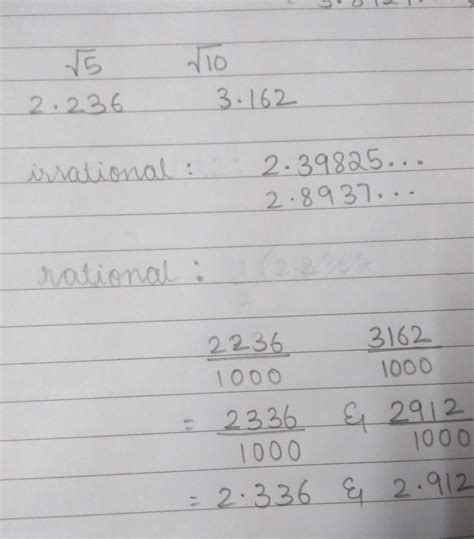 √5 √10
2.236 3.162
irrational : 2.39825...
2.8937...
rational :
2236/1000 3162/1000
= 2336/1000 & 2912/1000
= 2.336 & 2.912